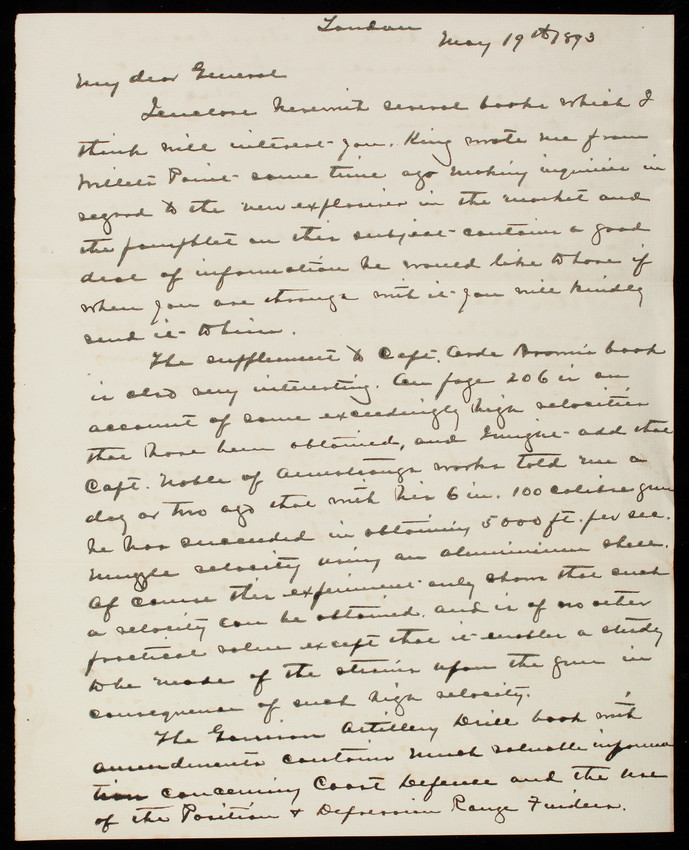 London
May 19th 1893
My dear General
I enclose herewith several books which I
think will interest you. King wrote me from
Willets Point some time ago making inquiries in
regard to the new explosives in the market and
the pamphlet on this subject contains a good
deal of information he would like to have if
when you are through with it you will kindly
send it to him.
The supplement to Capt. Orde Browne's book
is also very interesting. On page 206 is an
account of some exceedingly high velocities
that have been obtained, and I might add that
Capt. Noble of Armstrongs works told me a
day or two ago that with his 6 in. 100 calibre gun
he has succeeded in obtaining 5000 ft. per sec.
muzzle velocity using an aluminium shell.
Of course this experiment only shows that such
a velocity can be obtained, and is of no other
practical value except that it enables a study
to be made of the strains upon the gun in
consequence of such high velocity.
The Garrison Artillery Drill book with
amendments contains much valuable informa
tion concerning Coast Defense and the use
of the Position & Depression Range Finders.